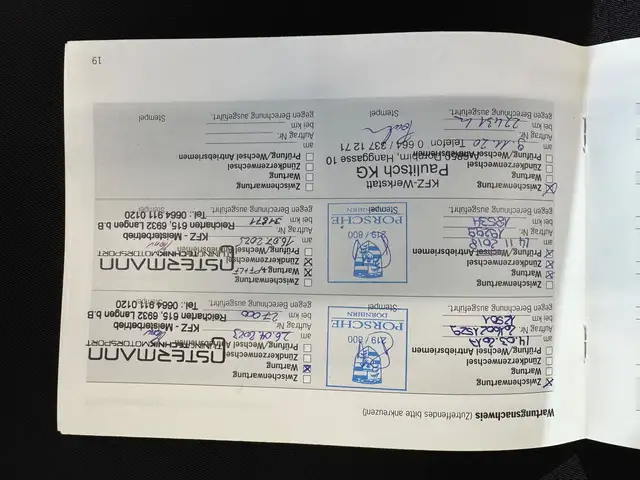 Wartungsnachweis (Zutreffendes bitte ankreuzen!)
Zwischenwartung
Wartung
Zündkerzenwechsel
Prüfung/Wechsel Antriebsriemen
am 14.03.2017
Auftrag Nr.
bei km
gegen Berechnung ausgeführt.
219 / 800
PORSCHE
DORNBIRN
Stempel
Zwischenwartung
Wartung
Zündkerzenwechsel
Prüfung/Wechsel Antriebsriemen
am 14.11.2018
Auftrag Nr. 19299
bei km 18531
gegen Berechnung ausgeführt.
219 / 800
PORSCHE
DORNBIRN
Stempel
Zwischenwartung
Wartung
Zündkerzenwechsel
Prüfung/Wechsel Antriebsriemen
am 9.11.20
Auftrag Nr.
bei km 22431 km
gegen Berechnung ausgeführt.
KFZ-Werkstatt
Paulitsch KG
A-6850 Dornbirn, Hanggasse 10
Telefon 0 664 / 337 12 71
Stempel
Zwischenwartung
Wartung
Zündkerzenwechsel
Prüfung/Wechsel Antriebsriemen
am 26.04.2023
Auftrag Nr.
bei km 27.000
gegen Berechnung ausgeführt.
OSTERMANN
TUNING TECHNIK MOTORSPORT
KFZ - Meisterbetrieb
Reicharten 615, 6932 Langen B.B
Tel.: 0664 911 0120
Zwischenwartung
Wartung
Zündkerzenwechsel
Prüfung/Wechsel Antriebsriemen
am 16.07.2025
Auftrag Nr.
bei km 31871
gegen Berechnung ausgeführt.
OSTERMANN
TUNING TECHNIK MOTORSPORT
KFZ - Meisterbetrieb
Reicharten 615, 6932 Langen b.B
Tel.: 0664 911 0120
Zwischenwartung
Wartung
Zündkerzenwechsel
Prüfung/Wechsel Antriebsriemen
am
Auftrag Nr.
bei km
gegen Berechnung ausgeführt.
Stempel
19